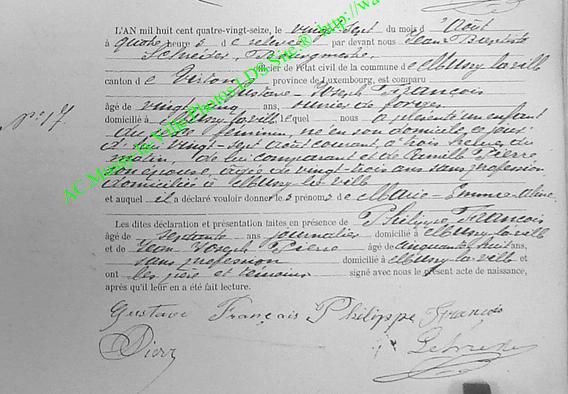 L'AN mil huit cent quatre-vingt-seize, le vingt-sept du mois d'Août
à quatre heures de relevée par devant nous Jean Baptiste
Schneider, Bourgmestre,
officier de l'état civil de la commune de Mussy la ville
canton de Virton province de Luxembourg, est comparu
Gustave-Joseph François
âgé de vingt cinq ans, ouvrier de forges
domicilié à Mussy la ville lequel nous a présenté un enfant
du sexe féminin, né en son domicile à jour
d'hui vingt-sept Août courant, à trois heures du
matin, de lui comparant et de Camille Pierre
son épouse, âgée de vingt-trois ans sans profession
domiciliée à Mussy la ville
et auquel il a déclaré vouloir donner les prénoms de Marie-Emma-Aline
Les dites déclaration et présentation faites en présence de Philippe François
âgé de septante ans, journalier domicilié à Mussy la ville
et de Jean Joseph Pierre âgé de cinquante huit ans,
sans profession domicilié à Mussy-la-ville et
ont les père et témoins signé avec nous le présent acte de naissance,
après qu'il leur en a été fait lecture.
Gustave François Philippe François
Pierr
AC.Mussy-la-Ville Photos LDS Site ® http://wa